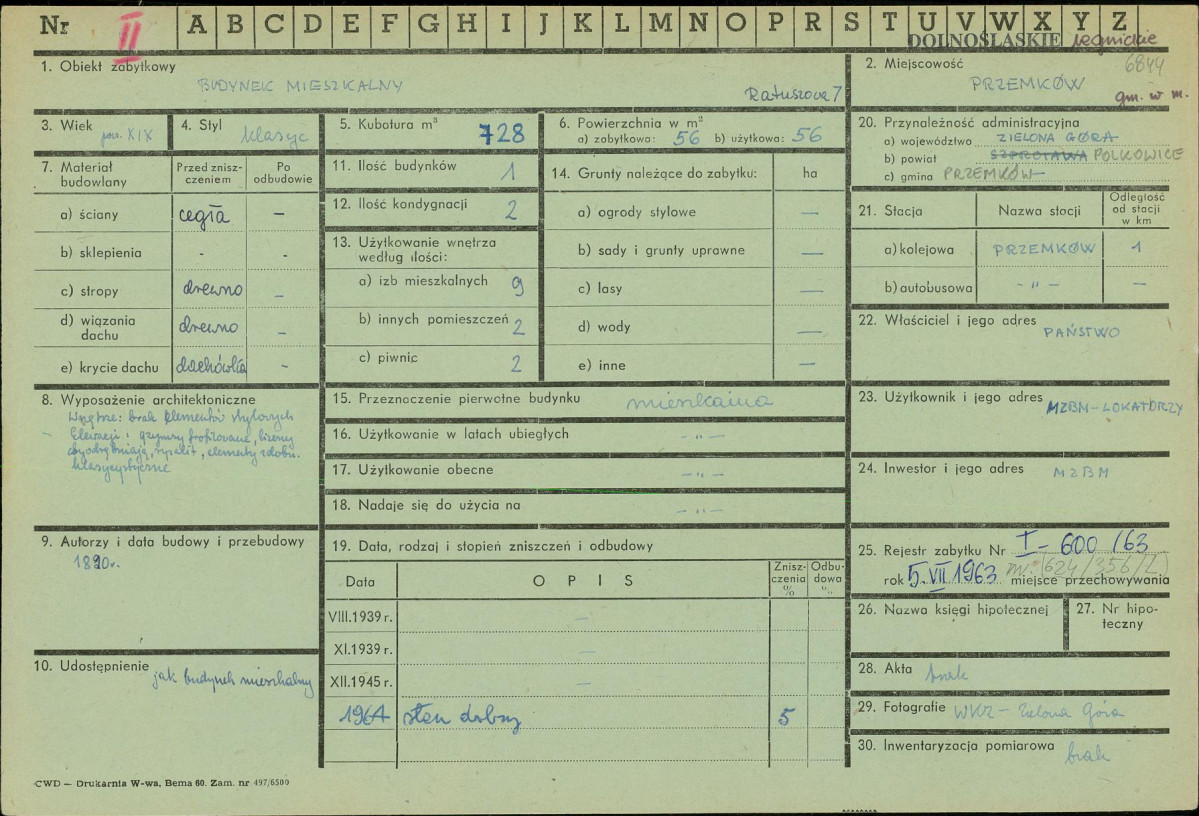 Nr II A B C D E F G H I J K L M N O P R S T U V W X Y Z
DOLNOŚLĄSKIE legnickie
1. Obiekt zabytkowy
BUDYNEK MIESZKALNY
Ratuszowa 7
2. Miejscowość 6844
PRZEMKÓW
gm. w m.
3. Wiek
pow. XIX
4. Styl
klasyc
5. Kubatura m³ 728
6. Powierzchnia w m²
a) zabytkowa: 56 b) użytkowa: 56
7. Materiał budowlany
Przed zniszczeniem
Po odbudowie
a) ściany cegła —
b) sklepienia - -
c) stropy drewno —
d) wiązania dachu drewno —
e) krycie dachu dachówka -
8. Wyposażenie architektoniczne
Wnętrze: brak elementów stylowych
Elewacji: gzymsy profilowane, lizeny
, ryzalit, elementy zdobn.
klasycystyczne
9. Autorzy i data budowy i przebudowy
10. Udostępnienie
jak budynek mieszkalny
11. Ilość budynków 1
12. Ilość kondygnacji 2
13. Użytkowanie wnętrza
według ilości:
a) izb mieszkalnych 9
b) innych pomieszczeń 2
c) piwnic 2
14. Grunty należące do zabytku: ha
a) ogrody stylowe —
b) sady i grunty uprawne —
c) lasy —
d) wody —
e) inne —
15. Przeznoczenie pierwotne budynku mieszkalna
16. Użytkowanie w latach ubiegłych - " -
17. Użytkowanie obecne - " -
18. Nadaje się do użycia na - " -
19. Data, rodzaj i stopień zniszczeń i odbudowy
Data OPIS Zniszczenia % Odbudowa %
VIII.1939 r. —
XI.1939 r. —
XII.1945 r. —
1964 stan dobry 5
20. Przynależność administracyjna
a) województwo ZIELONA GÓRA
b) powiat SZPROTAWA POLKOWICE
c) gmina PRZEMKÓW
21. Stacja Nazwa stocji Odległość od stacji w km
a) kolejowa PRZEMKÓW 1
b) autobusowa - " - —
22. Właściciel i jego adres
PAŃSTWO
23. Użytkownik i jego adres
MZBM-LOKATORZY
24. Inwestor i jego adres
MZBM
25. Rejestr zabytku Nr I-600/63
rok 5.VII 1963 miejsce przechowywania
nr. (624/356/L)
26. Nazwa księgi hipotecznej
27. Nr hipoteczny
28. Akta brak
29. Fotografie WKZ - Zielona Góra
30. Inwentaryzacja pomiarowa
brak
CWD — Drukarnia W-wa, Bema 60. Zam. nr 497/6500